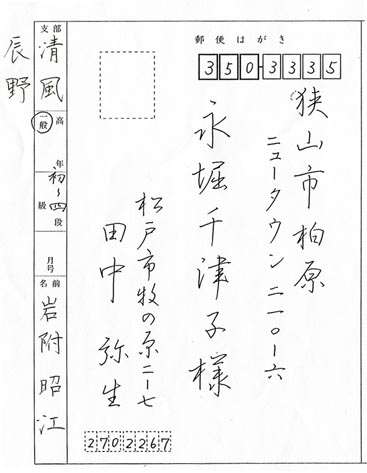 郵便はがき
350-3335
狭山市柏原
ニュータウン二一〇ー六
永堀千津子様
松戸市牧の原二ー七
田中弥生
2702267
支部 清風
辰野
一般 高 年
初〜四
級 段
月号
名前 岩附昭江